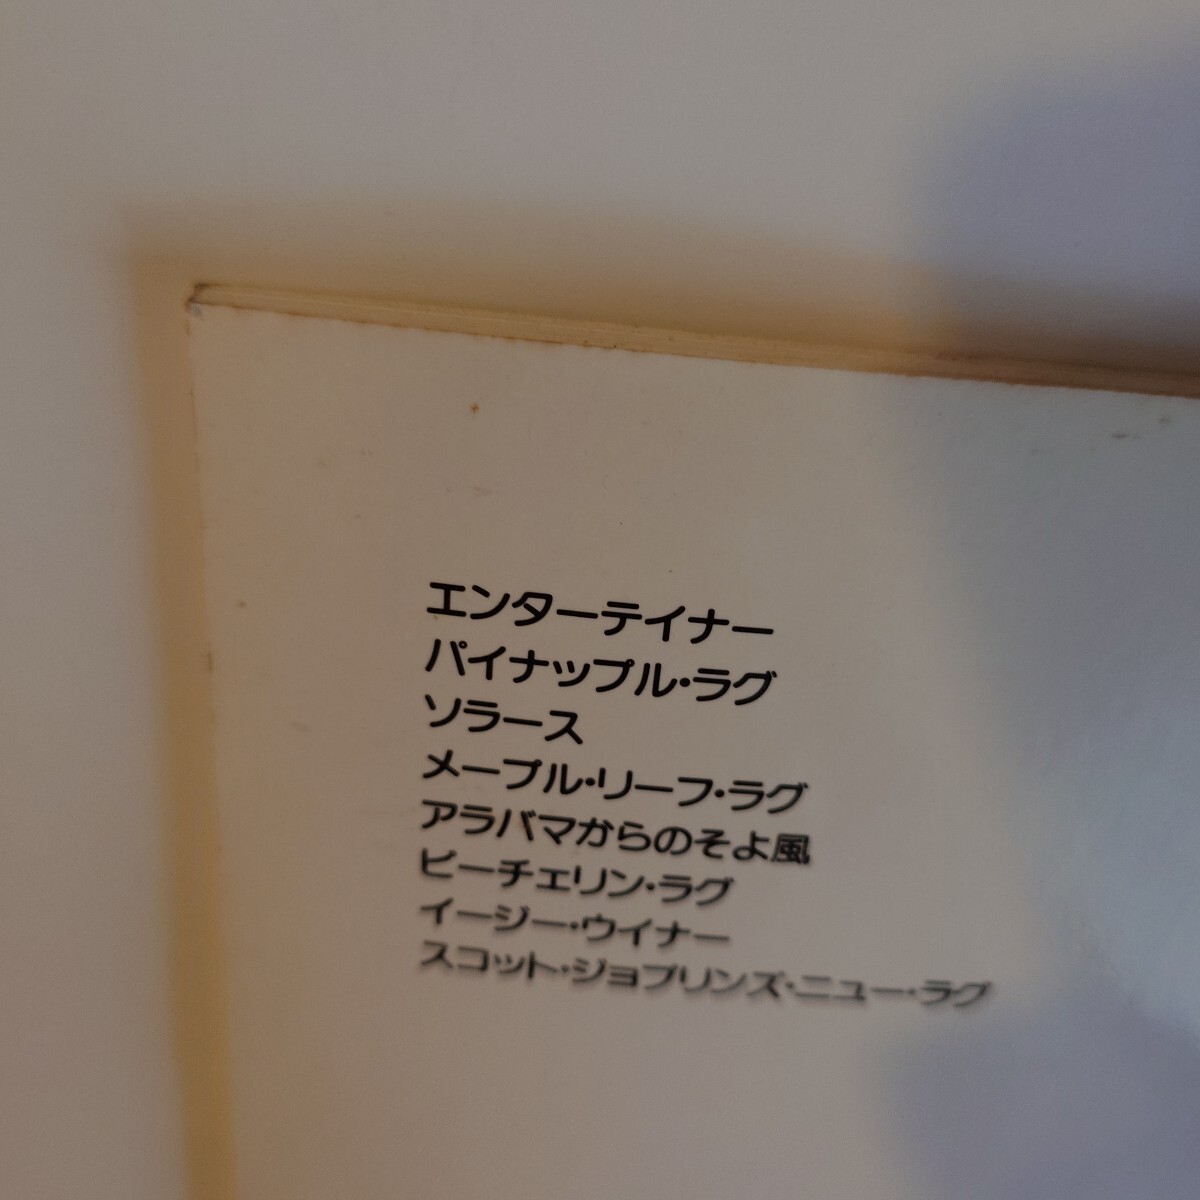 エンターテイナー
パイナップル・ラグ
ソラース
メープル・リーフ・ラグ
アラバマからのそよ風
ビーチェリン・ラグ
イージー・ウイナー
スコット・ジョプリンズ・ニュー・ラグ